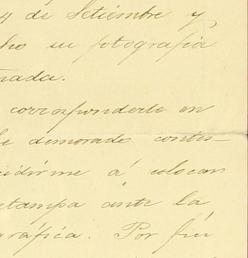 4 de Setiembre y,
ho su fotografia
nada.
corresponderle en
he demorado contes-
cidirme á colocar
etampa ante la
gráfica. Por fin